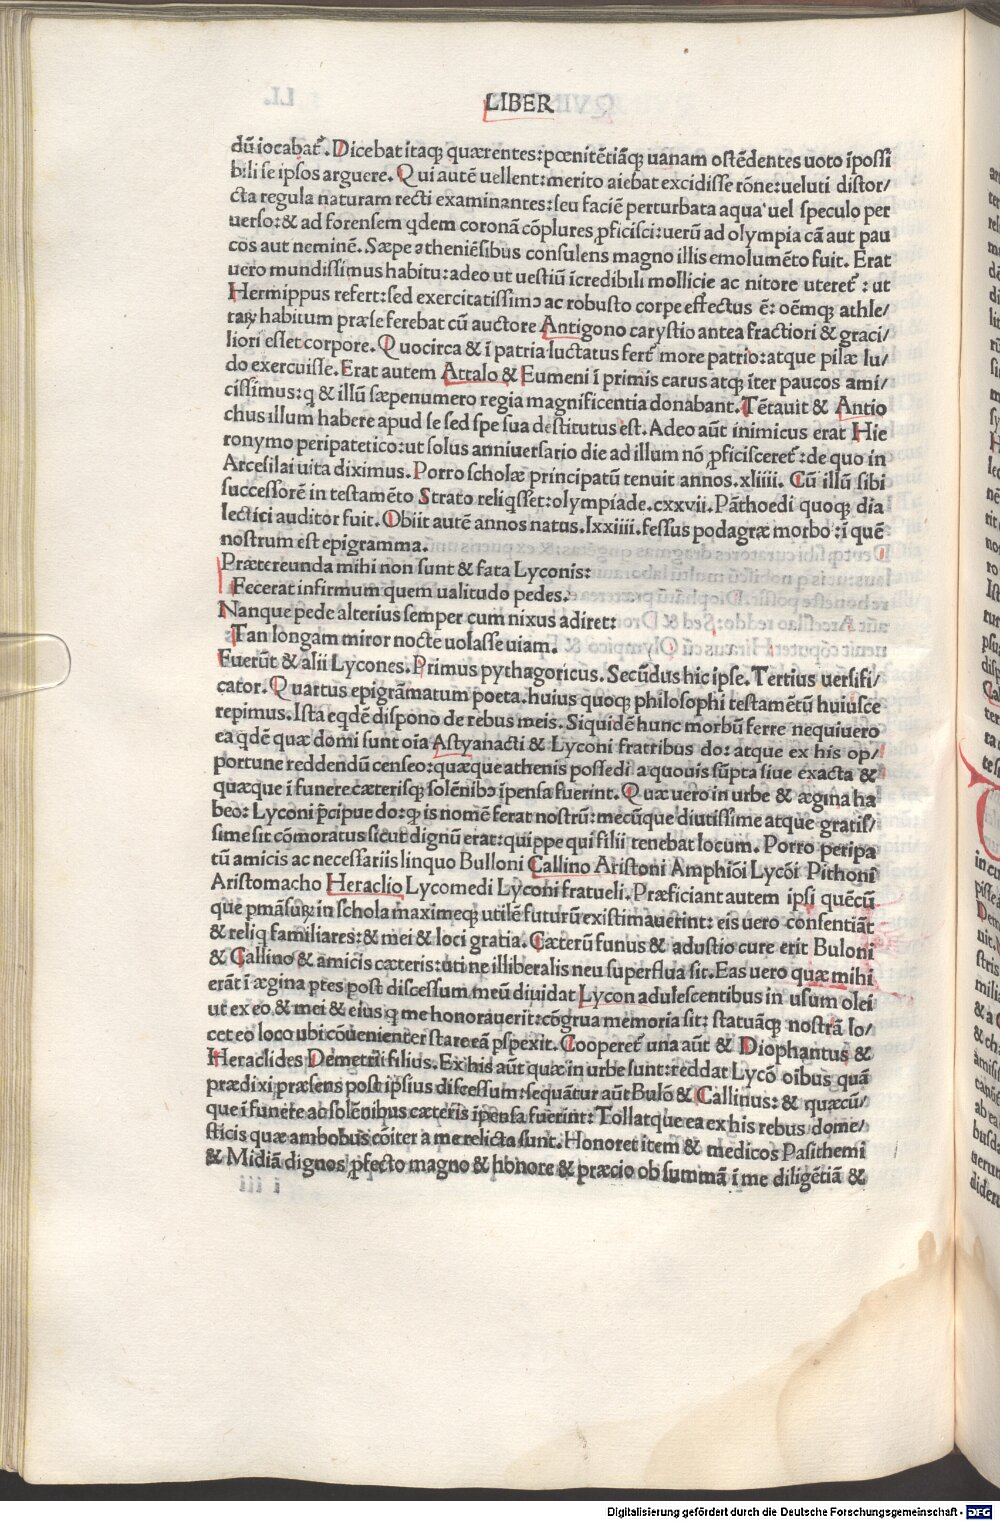 LIBER
dū iocabat᷑. Dicebat itaqꝫ quærentes: pœnitētiāqꝫ uanam ostēdentes uoto īpossi
bili se ipsos arguere. Qui autē uellent: merito aiebat excidisse rōne: ueluti distor/
cta regula naturam recti examinantes: seu faciē perturbata aqua uel speculo per
uerso: & ad forensem qdem coronā cōplures ꝓficisci: uerū ad olympia cā aut pau
cos aut neminē. Sæpe atheniēsibus consulens magno illis emolumēto fuit. Erat
uero mundissimus habitu: adeo ut uestiū īcredibili mollicie ac nitore uteret᷑: ut
Hermippus refert: sed exercitatissimo ac robusto corpe effectus ē: oēmqꝫ athle/
taꝝ habitum præ se ferebat cū auctore Antigono carystio antea fractiori & graci/
liori esset corpore. Quocirca & ī patria luctatus fert᷑ more patrio: atque pilæ lu/
do exercuisse. Erat autem Attalo & Eumeni ī primis carus atqꝫ īter paucos ami/
cissimus: q & illū sæpenumero regia magnificentia donabant. Tētauit & Antio
chus illum habere apud se sed spe sua destitutus est. Adeo aūt inimicus erat Hie
ronymo peripatetico: ut solus anniuersario die ad illum nō ꝓficisceret᷑: de quo in
Arcesilai uita diximus. Porro scholæ principatū tenuit annos. xliiii. Cū illū sibi
successorē in testamēto Strato reliqsset: olympiade. cxxvii. Pāthoedi quoqꝫ dia
lectici auditor fuit. Obiit autē annos natus. lxxiiii. fessus podagræ morbo: ī quē
nostrum est epigramma.
Prætereunda mihi nois sunt & fata Lyconis:
Fecerat infirmum quem ualitudo pedes.
Nanque pede alterius semper cum nixus adiret:
Tan longam miror nocte uolasse uiam.
Fuerūt & alii Lycones. Primus pythagoricus. Secūdus hic ipse. Tertius uersifi/
cator. Quartus epigrāmatum poeta. huius quoqꝫ philosophi testamētū huiusce
repimus. Ista eqdē dispono de rebus meis. Siquidē hunc morbū ferre nequiuero
ea qdē quæ domi sunt oīa Astyanacti & Lyconi fratribus do: atque ex his op/
portune reddendū censeo: quæque athenis possedi a quouis sūpta siue exacta &
quæque ī funere cæterisqꝫ solēnibo īpensa fuerint. Quæ uero in urbe & ægina ha
beo: Lyconi p̄cipue do: ꝙ is nomē ferat nostrū: mecūque diutissime atque gratis/
sime sit cōmoratus sicut dignū erat: quippe qui filii tenebat locum. Porro peripa
tū amicis ac necessariis linquo Bulloni Callino Aristoni Amphiōi Lycōi Pithoni
Aristomacho Heraclio Lycomedi Lyconi fratueli. Præficiant autem ipsi quēcū
que pmāsuꝝ in schola maximeqꝫ utilē futurū existimauerint: eis uero consentiāt
& reliq familiares: & mei & loci gratia. Cæterū funus & adustio cure erit Buloni
& Callino & amicis cæteris: uti ne illiberalis neu superflua sit. Eas uero quæ mihi
erāt ī ægina ptes post discessum meū diuidat Lycon adulescentibus in usum olei
ut ex eo & mei & eius q me honorauerit: cōgrua memoria sit: statuāqꝫ nostrā lo/
cet eo loco ubi cōuenienter stare eā pspexit. Cooperet᷑ una aūt & Diophantus &
Heraclides Demetrii filius. Ex his aūt quæ in urbe sunt: reddat Lycō oibus quā
prædixi præsens post ipsius discessum: sequātur aūt Bulō & Callinus: & quæcū/
que ī funere ac solēnibus cæteris īpensa fuerint: Tollatque ea ex his rebus dome/
sticis quæ ambobus cōiter a me relicta sunt. Honoret item & medicos Pasithemi
& Midiā dignos ꝓfecto magno & honore & præcio ob summā ī me diligētiā &
Digitalisierung gefördert durch die Deutsche Forschungsgemeinschaft - DFG